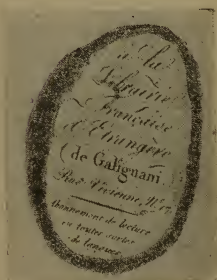 à la
Librairie
Française
et Etrangère
(de Galignani
Rue Vivienne, Nº 17,
Abonnement de lecture
en toutes sortes
de langues